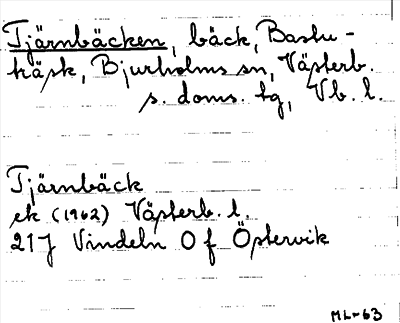 Tjärnbäcken, bäck, Bastu-
träsk, Bjurholms sn, Västerb.
s. doms. tg, Vb. l.
Tjärnbäck
ek (1962) Västerb. l.
21J Vindeln O f Östervik
ML-63